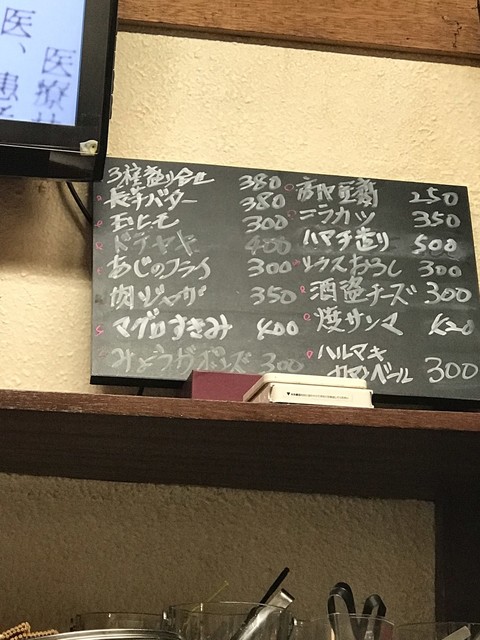 医、医療
患者
3種盛り合せ 380
長芋バター 380
300
400
あじのフライ 300
肉ジャガ 350
マグロすきみ 400
みょうがポンズ 300
250
ニラカツ 350
ハマチ造り 500
シラスおろし 300
酒盗チーズ 300
焼サンマ 420
ハルマキ
カマンベール 300